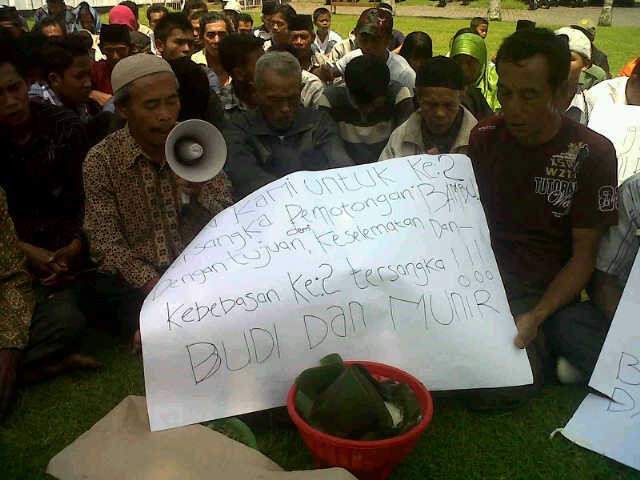 KAMI UNTUK KE:2
rsangka Pemotongan BAMBU.
Dengan tujuan, demi Keselematan, Dan—
Kebebasan Ke:2 tersangka !!!
BUDI Dan MUNIR
B
D